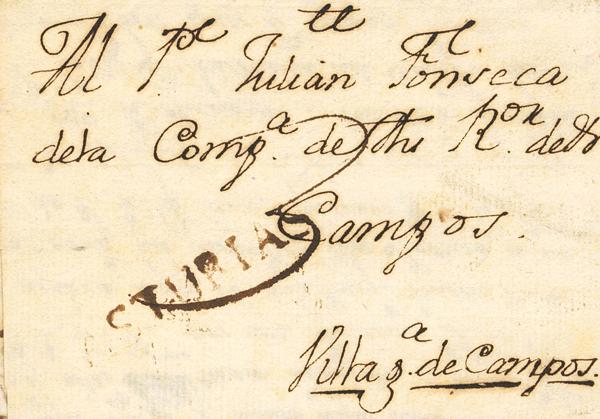 Al P.e Julian Fonseca
dela Comp.a de Jhs R.or de
Campos.
STURIAS
Villag.a de Campos.